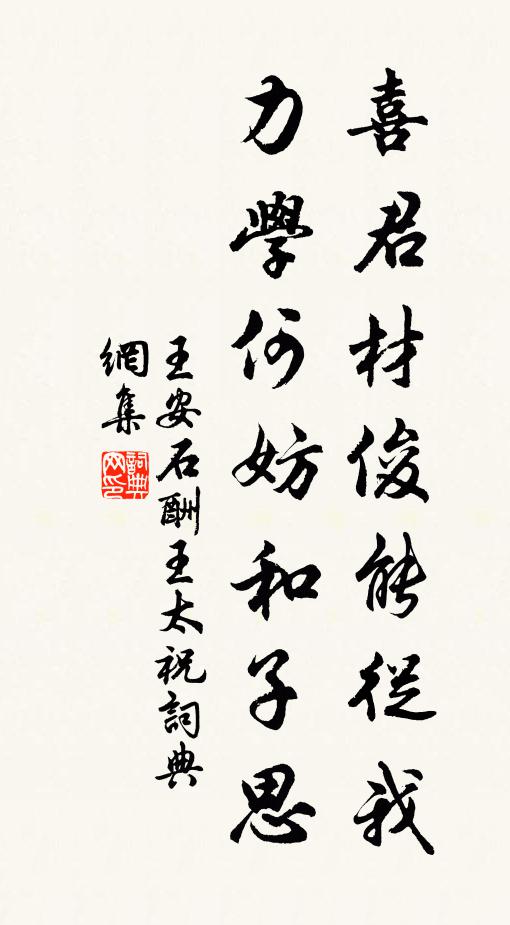 喜君材俊能從我
力學何妨和子思
王安石酬王太祝詞典
網集
詞典
网印